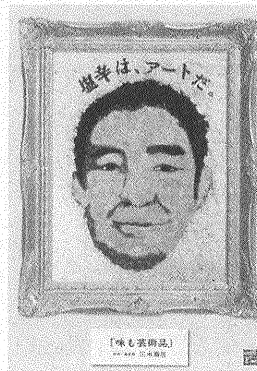 塩辛は、アートだ。
「味も芸術品」